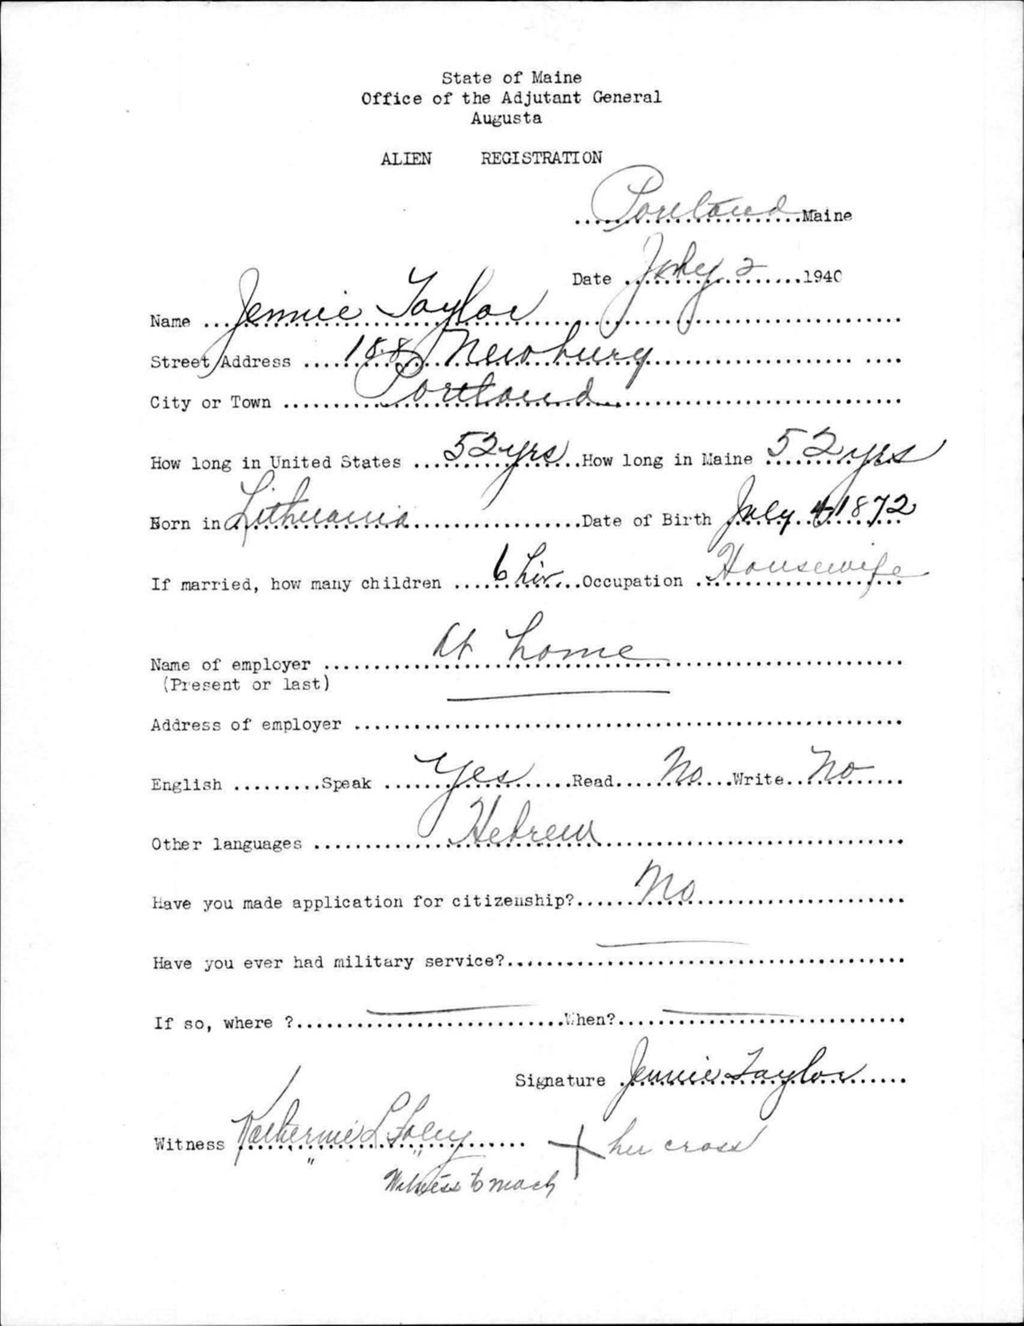 State of Maine
Office of the Adjutant General
Augusta
ALIEN REGISTRATION
Portland Maine
Date July 2 1940
Name Jennie Taylor
Street Address 188 Newbury
City or Town Portland
How long in United States 52 yrs How long in Maine 52 yrs
Born in Lithuania Date of Birth July 4 1872
If married, how many children 6 liv Occupation Housewife
Name of employer At home
(Present or last)
Address of employer
English Speak Yes Read No Write No
Other languages Hebrew
Have you made application for citizenship? No
Have you ever had military service?
If so, where ? When?
Signature Jennie Taylor
Witness Katherine L Foley + her cross
" "
Witness to mark